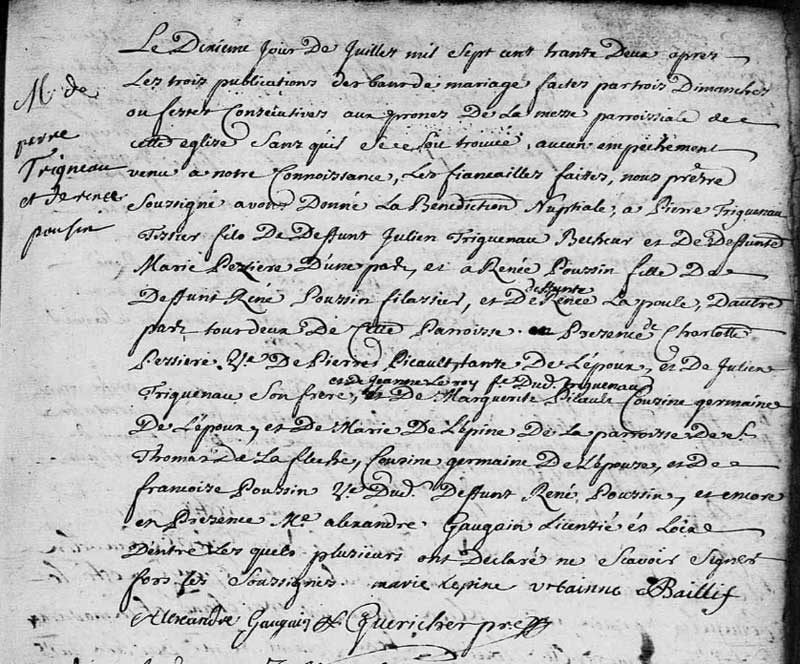 Le Dixieme Jour De Juillet mil sept cent trante Deux apres
Les trois publications des bans de mariage faites par trois Dimanches
ou festes Consecutives aux prones De La messe parroissiale de
cette eglise Sans qu'il se soit trouvé, aucun empechement
venu a notre Connoissance, Les fiancailles faites, nous prêtre
Soussigné avons Donné La Benediction Nuptiale, a Pierre Triguenau
Tissier fils De Deffunt Julien Triguenau Becheur et De Deffunte
Marie Peziere D'une part, et a Renée Poussin fille De
Deffunt René Poussin filassier, et De deffunte Renée La poule, D'autre
part tous deux De Cette Parroisse. en Prezence de Charlotte
Pessiere Ve De Pierre Picault tante De L'époux, et De Julien
Triguenau Son frere, et de Jeanne Le roy fe Dud. Triguenau et De Marguerite Picault Couzine germaine
De L'époux, et De Marie De L'épine De La parroisse de St
Thomas De La fleche, Couzine germaine De L'épouse, et De
francoize Poussin Ve Dud. Deffunt René Poussin, et encore
en Prezence Me alexandre Gaugain Licentié és Loix
D'entre Les quels plusieurs ont Declaré ne Scavoir Signer
fors les Soussignés. marie Lepine urbainne Baillif
Alexandre Gaugain Guericher pre
M. de
pierre
Trigneau
et de renee
pousin